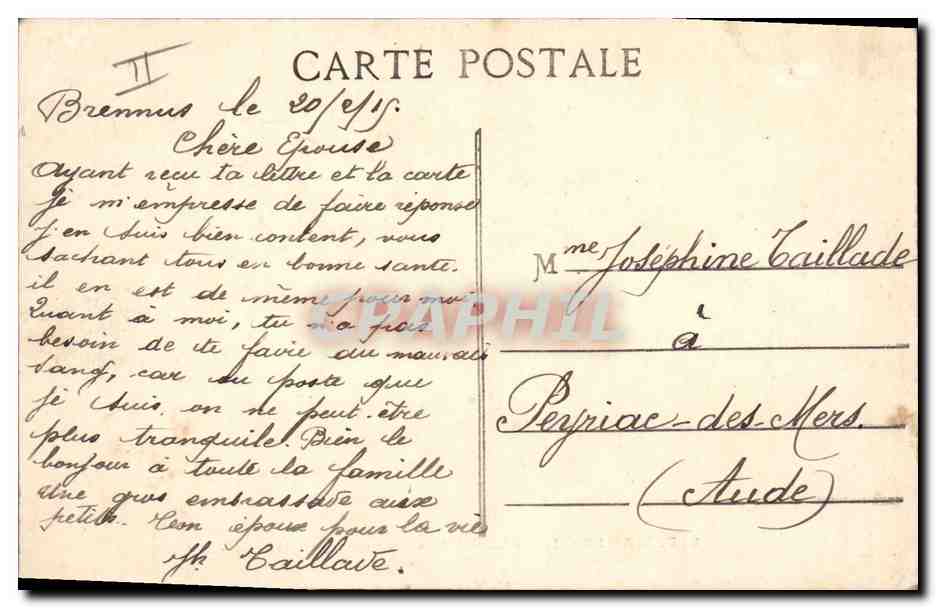 II
CARTE POSTALE
Brennus le 20/2/15.
Chère Epouse
Ayant reçu ta lettre et la carte
je m'empresse de faire réponse
j'en suis bien content, vous
sachant tous en bonne santé.
il en est de même pour moi
Quant à moi, tu n'a pas
besoin de te faire du mauvais
sang, car au poste que
je suis on ne peut être
plus tranquile. Bien le
bonjour à toute la famille
Une gros embrassade aux
petits. Ton époux pour la vie
Jh Taillade.
Mme Joséphine Taillade
à
Peyriac-des-Mers.
(Aude)
CPAPHIL